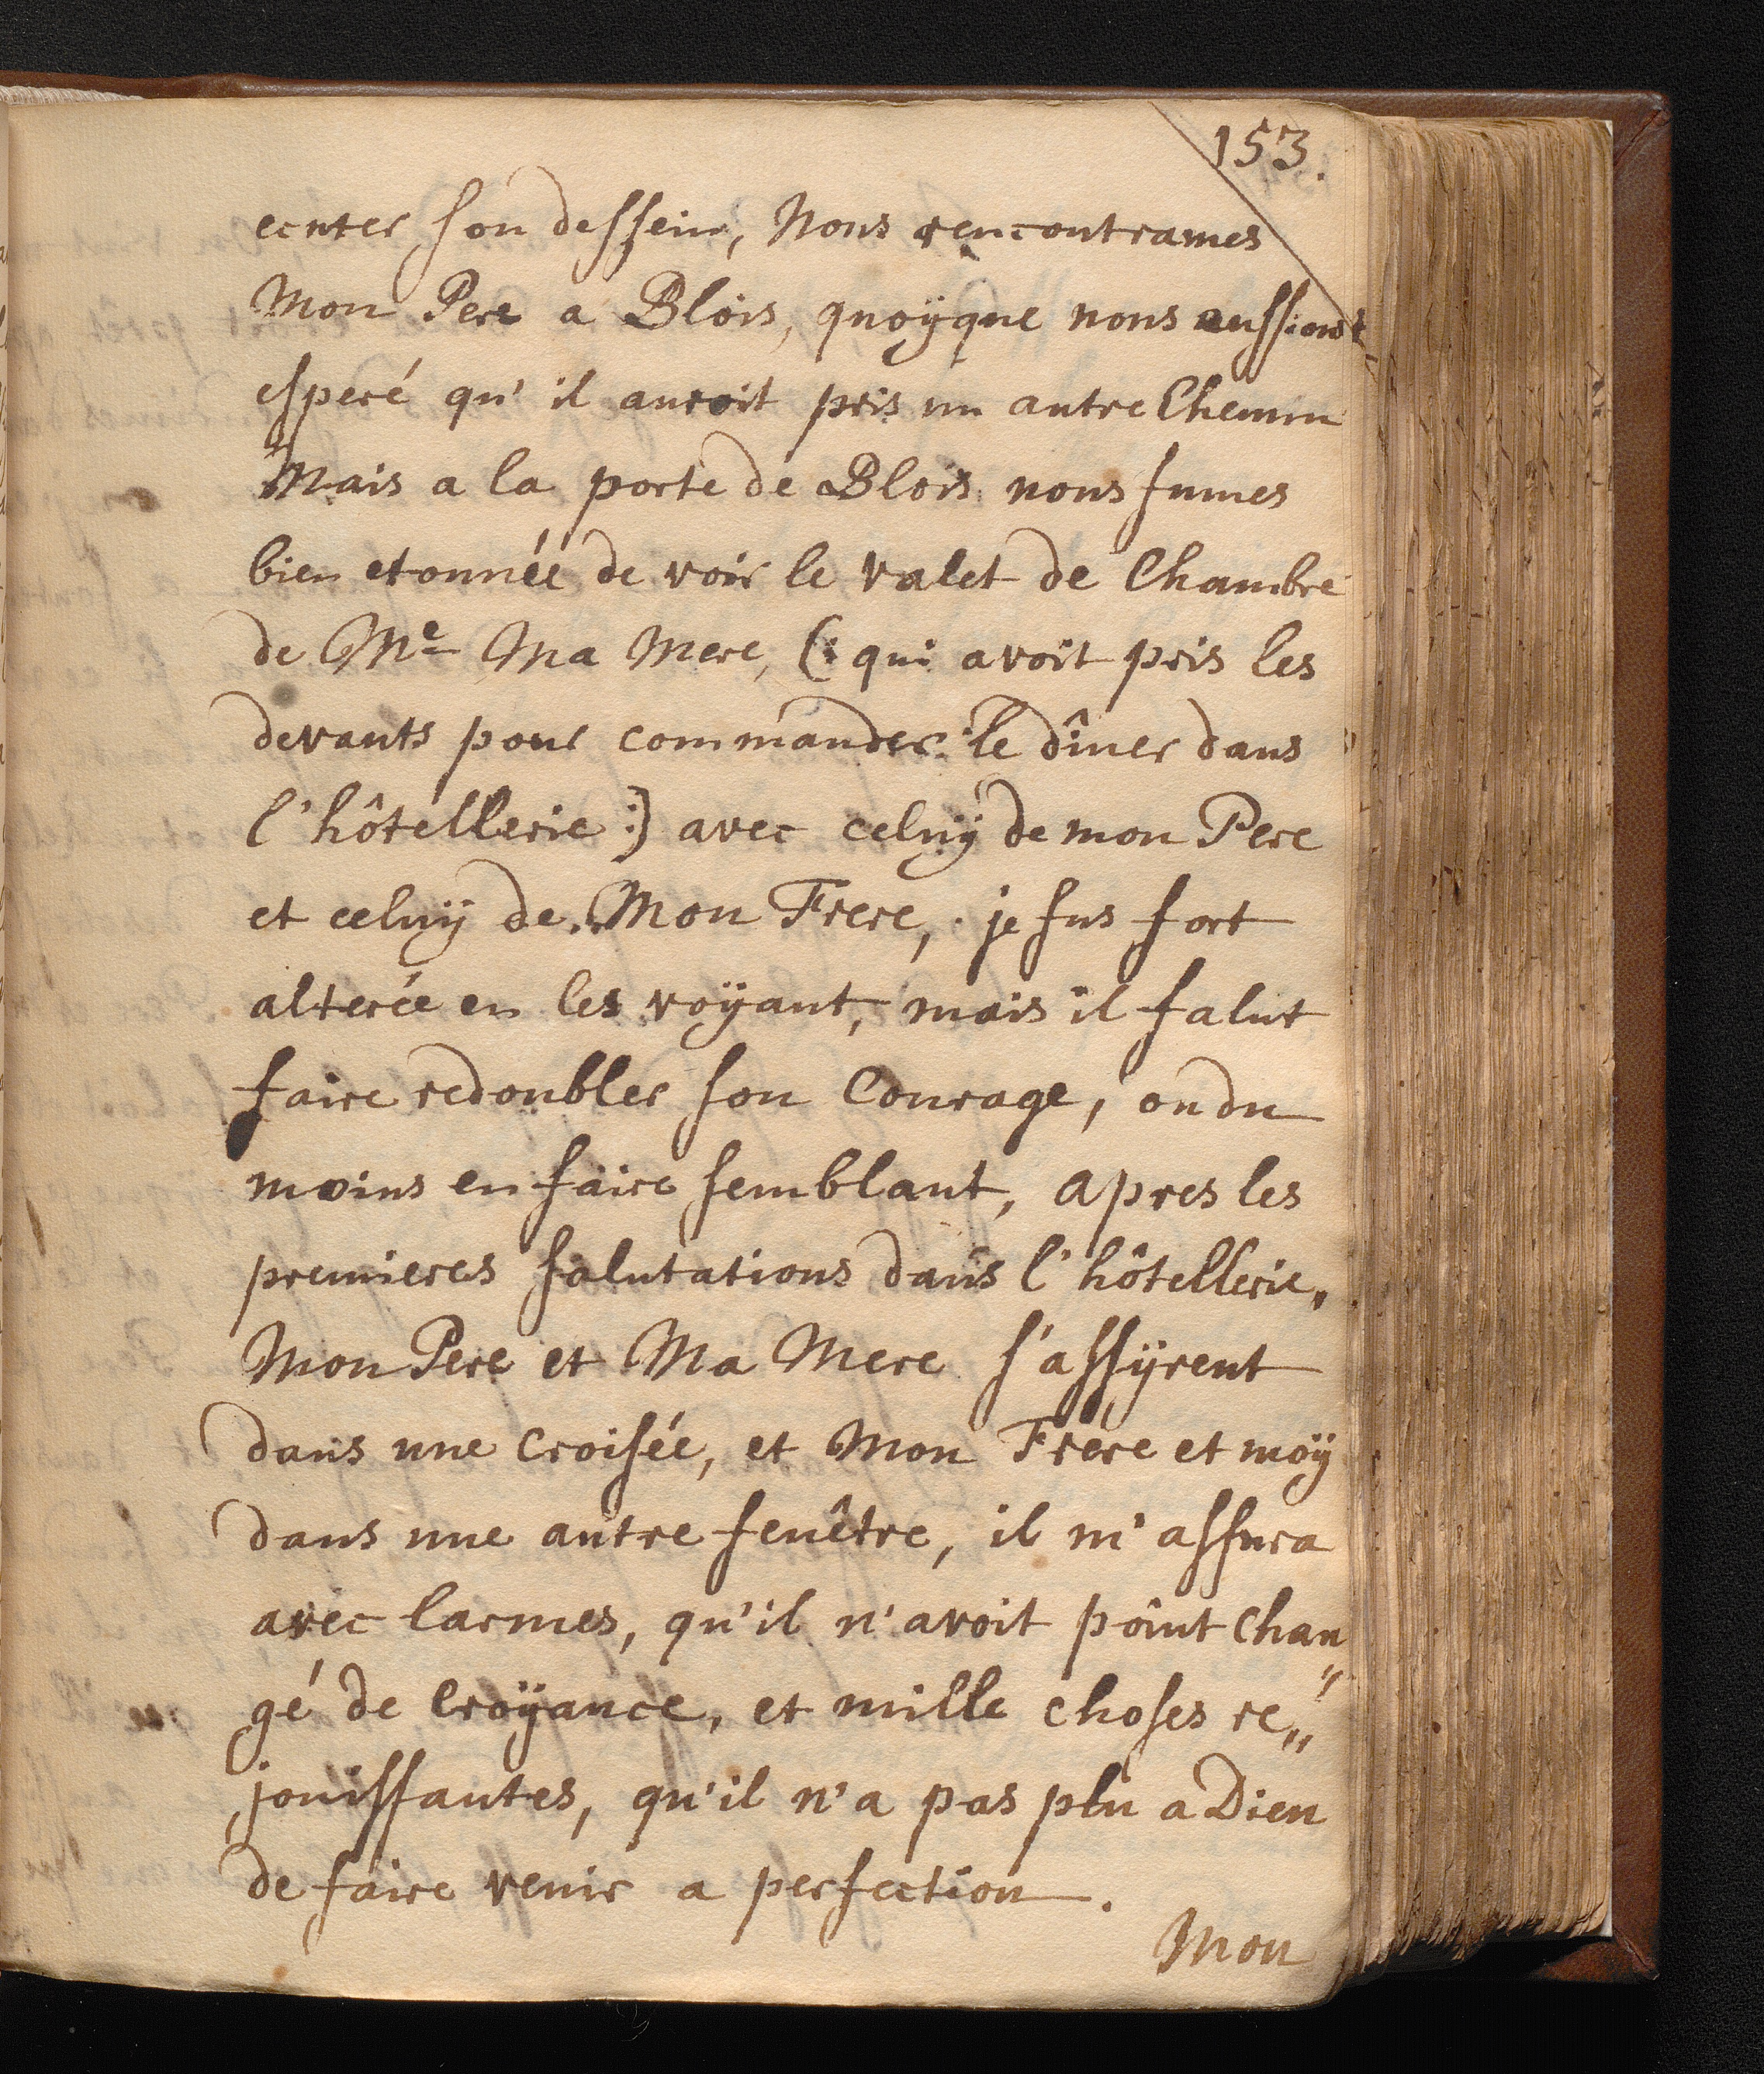 153.
ecuter son dessein, Nous rencontrames
Mon Pere a Blois, quoÿque nous eussions
esperé qu'il auroit pris un autre Chemin
Mais a la porte de Blois nous fumes
bien etonnéé de voir le valet de Chambre
de Me Ma Mere, (: qui avoit pris les
devants pour commander le dîner dans
l'hôtellerie :) avec celuÿ de mon Pere
et celuÿ de Mon Frere, je fus fort
alterée en les voÿant, mais il falut
faire redoubler son Courage, ou du
moins en faire semblant, apres les
premieres salutations dans l'hôtellerie,
Mon Pere et Ma Mere s'assÿrent
dans une Croisée, et Mon Frere et moÿ
dans une autre fenêtre, il m'assura
avec larmes, qu'il n'avoit point chan„
gé de Croÿance, et mille choses re„
jouissantes, qu'il n'a pas plu a Dieu
de faire venir a perfection.
Mon